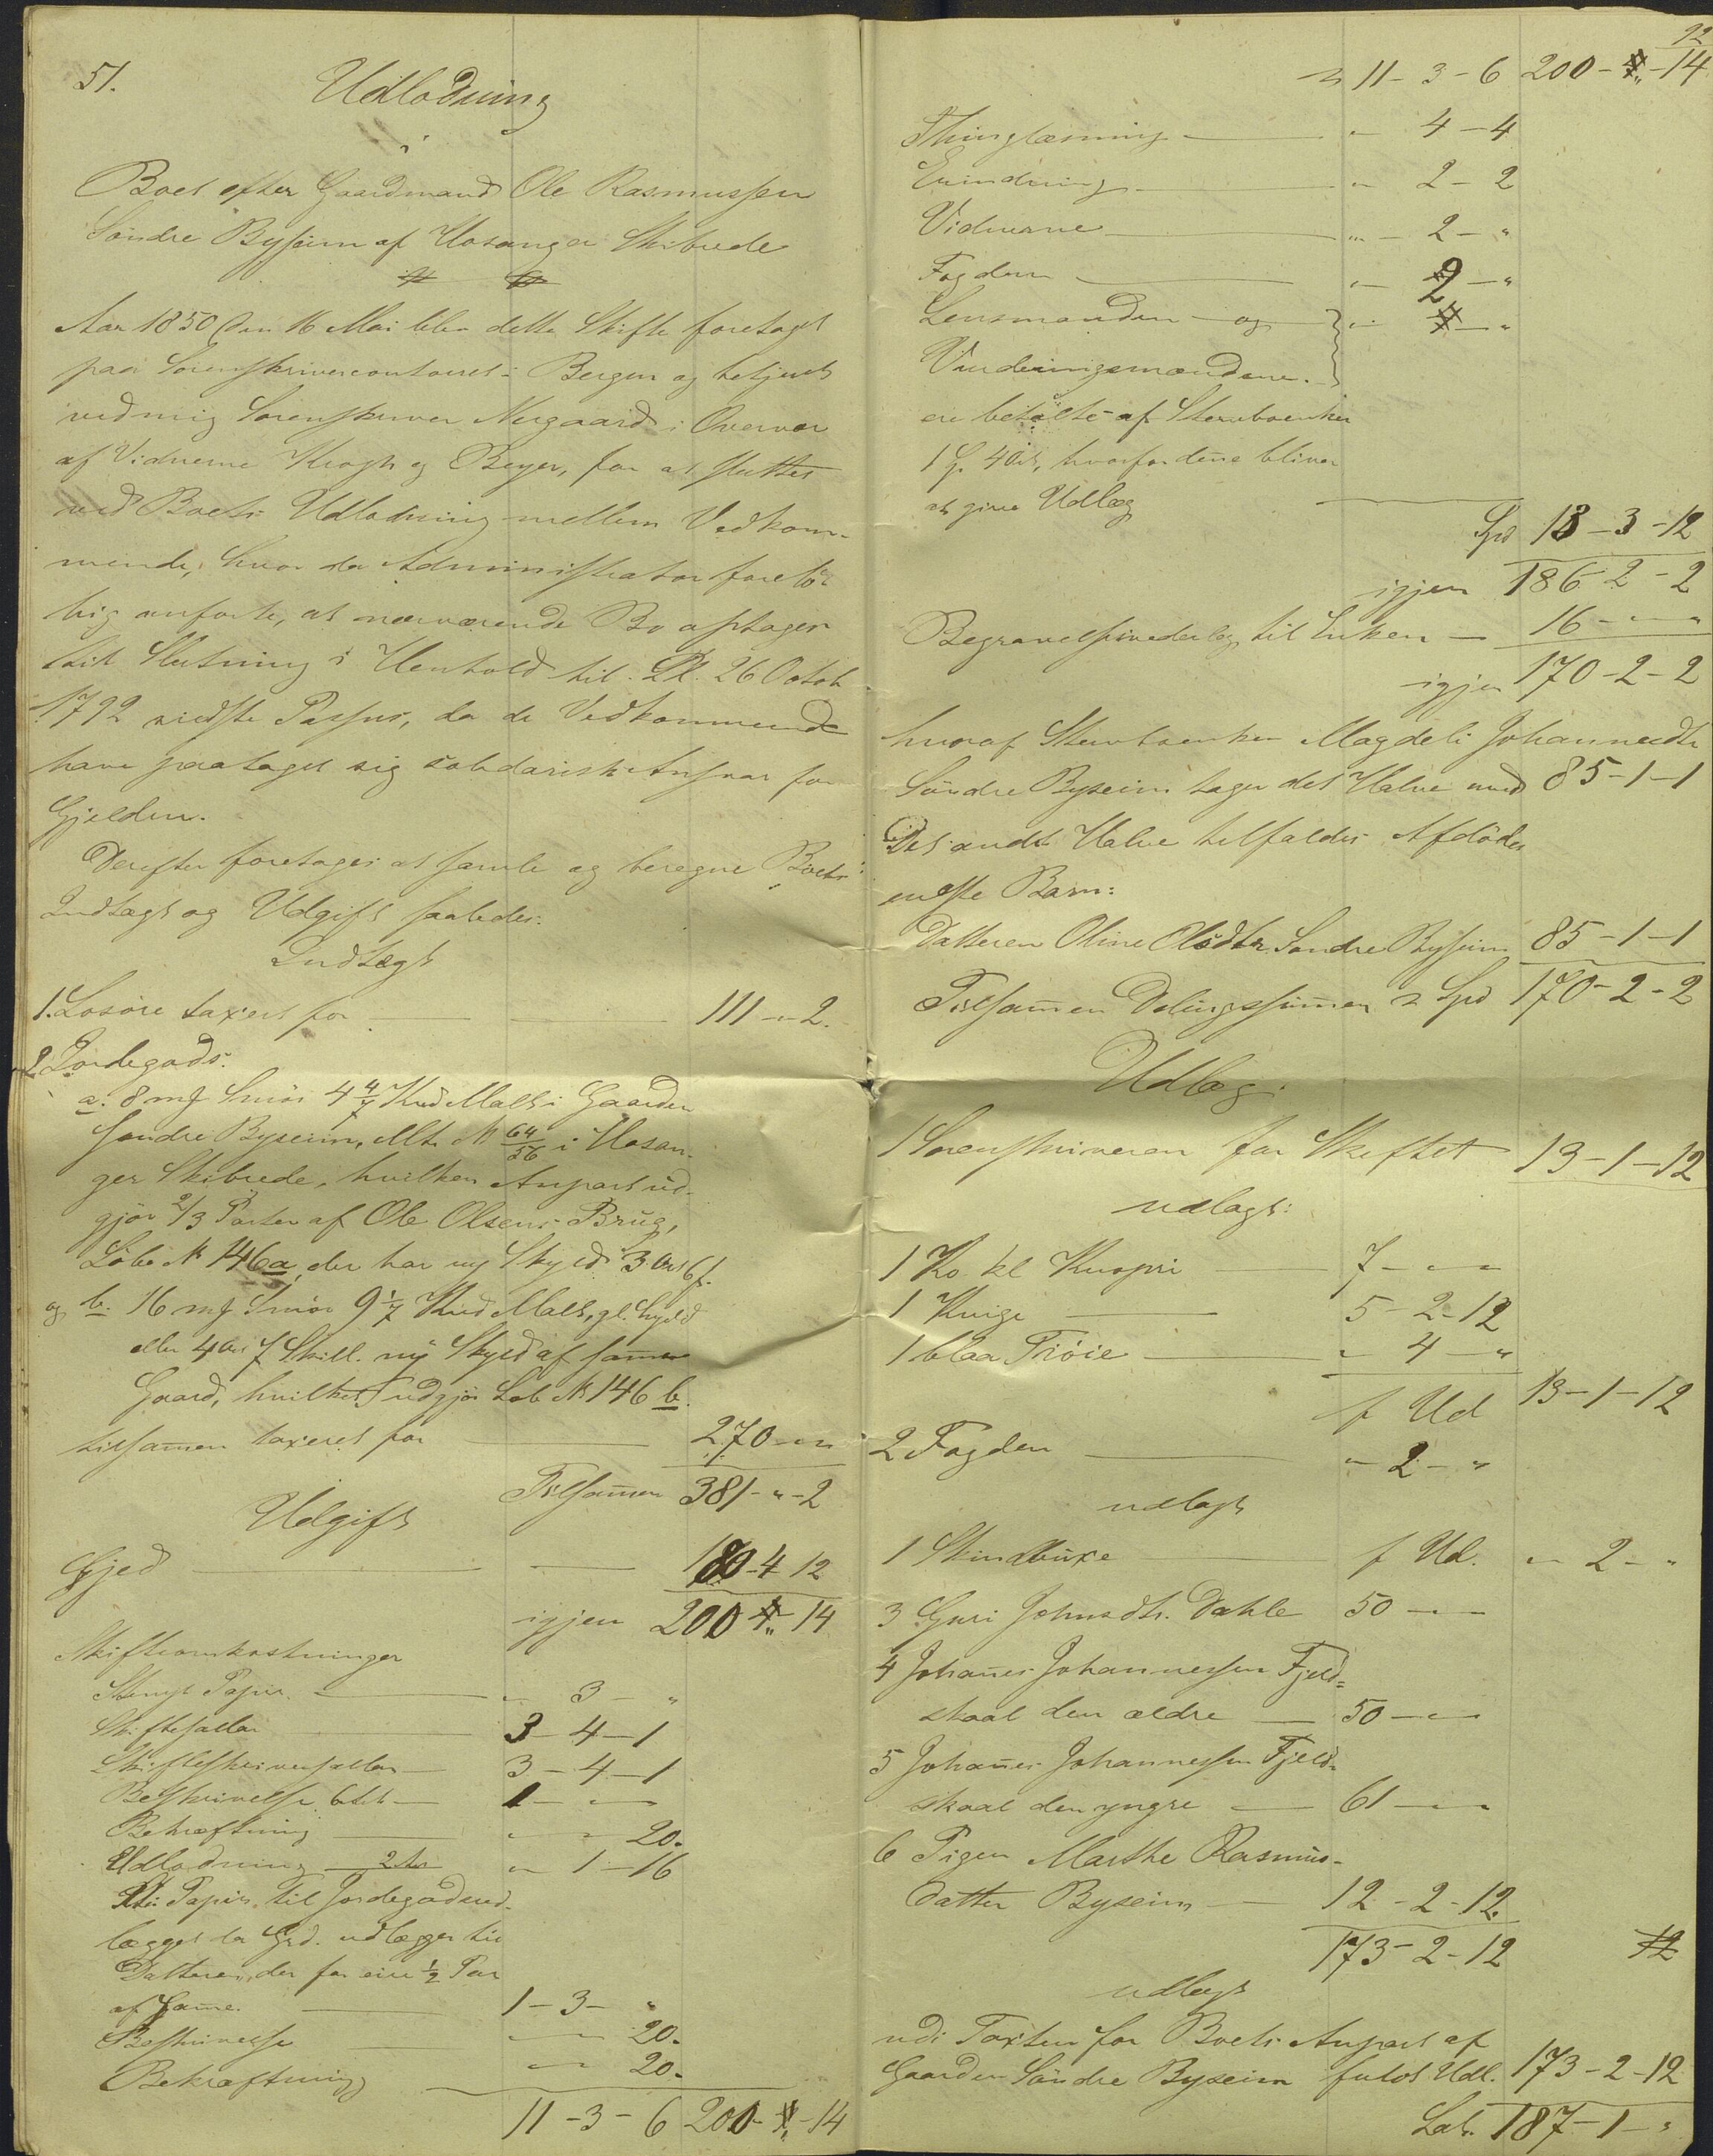 51.
Udlodning
i
Boet efter Gaardmand Ole Rasmussen
Söndre Byseim af Hosanger Skibrede
Aar 1850 den 16 Mai blev dette Skifte foretaget
paa Sorenskrivercontoiret i Bergen og betjent
ved mig Sorenskriver Nergaard i Overvær
af Vidnerne Krogh og Beyer, for at sluttes
ved Boets Udlodning mellem Vedkom-
mende, hvor da Administrator forelö-
big anförte, at nærværende Bo optages
til Slutning i Henhold til Pl. 26 Octob
1792 sidste Passus, da de Vedkommende
have paataget sig solidarisk Ansvar for
Gjelden.
Derefter foretages at samle og beregne Boets
Indtægt og Udgift saaledes:
Indtægt
1. Losöre taxert for 111 - " - 2.
2 Jordegods:
a. 8 mf Smör 4 4/7 Kd Malt i Gaarden
Söndre Byseim, Mt. N 64/56 i Hosan-
ger Skibrede, hvilken Anpart ud-
gjör 2/3 Parter af Ole Olsens Brug,
Löbe N 146a, der har ny Skyld 3 Ort 6 s.
og b. 16 mf Smör 9 1/7 Kd Malt, gl. Skyld
eller 4 Ort 7 Skill. ny Skyld af samme
Gaard, hvilket udgjör Löb N 146 b.
tilsammen taxeret for 270 - " - "
Tilsammen 381 - " - 2
Udgift
Gjeld 180 - 4 - 12
igjen 200 - " - 14
Skifteomkostninger
Stemp. Papir " - 3 - "
Skiftesallar 3 - 4 - 1
Skifteskriversallar 3 - 4 - 1
Beskrivelse 6 Ark 1 - " - "
Bekræftning " - " - 20.
Udlodning 2 Ark " - 1 - 16
St: Papir til Jordegodsud-
lægget
Datteren, der før eier 1/2 Par
af Same. 1 - 3 - "
Beskrivelse " - " - 20.
Bekræftning " - " - 20.
11 - 3 - 6 200 - " - 14
12
11 - 3 - 6 200 - " - 14
Thinglæsning " - 4 - 4
Erindring " - 2 - 2
Vidnerne " - 2 - "
Fogden " - 2 - "
Lensmanden og
Vurderingsmændene
ere betalte af Stervboenken
1 Sp. 4 Ort, hvorfor denne bliver
at give Udlæg
Spd 13 - 3 - 12
igjen 186 - 2 - 2
Begravelsesvederlag til Enken 16 - " - "
igjen 170 - 2 - 2
hvoraf Stervboenken Magdeli Johannesdtr
Söndre Byseim tager det Halve med 85 - 1 - 1
Det andet Halve tilfalder Afdödes
eneste Barn:
Datteren Oline Olsdtr Söndre Byseim 85 - 1 - 1
Tilsammen Delingssummen Spd 170 - 2 - 2
Udlæg:
1 Sorenskriveren for Skiftet 13 - 1 - 12
udlagt:
1 Ko kl Knopri 7 - " - "
1 Kvige 5 - 2 - 12
1 blaa Tröie " - 4 - "
f Ud 13 - 1 - 12
2 Fogden " - 2 - "
udlagt
1 Skindbuxe f Ud. " - 2 - "
3 Guri Johnsdtr. Dahle 50 - " - "
4 Johanes Johannessen Fjeld-
skaal den ældre 50 - " - "
5 Johanes Johannessen Fjeld-
skaal den yngre 61 - " - "
6 Pigen Marthe Rasmus-
datter Byseim 12 - 2 - 12.
173 - 2 - 12
udlagt
udi Taxten for Boets Anpart af
Gaarden Söndre Byseim fulst Udl. 173 - 2 - 12
Lat. 187 - 1 - "